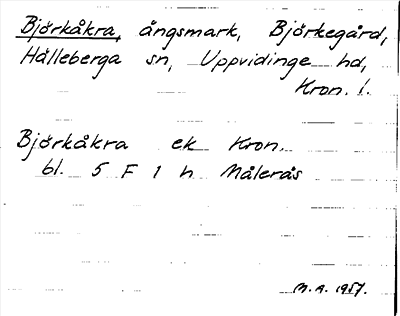 Björkåkra, ångsmark, Björkegård,
Hälleberga sn, Uppvidinge hd,
Kron. l.
Björkåkra ek Kron.
bl. 5 F 1 h Målerås
M.A. 1957.